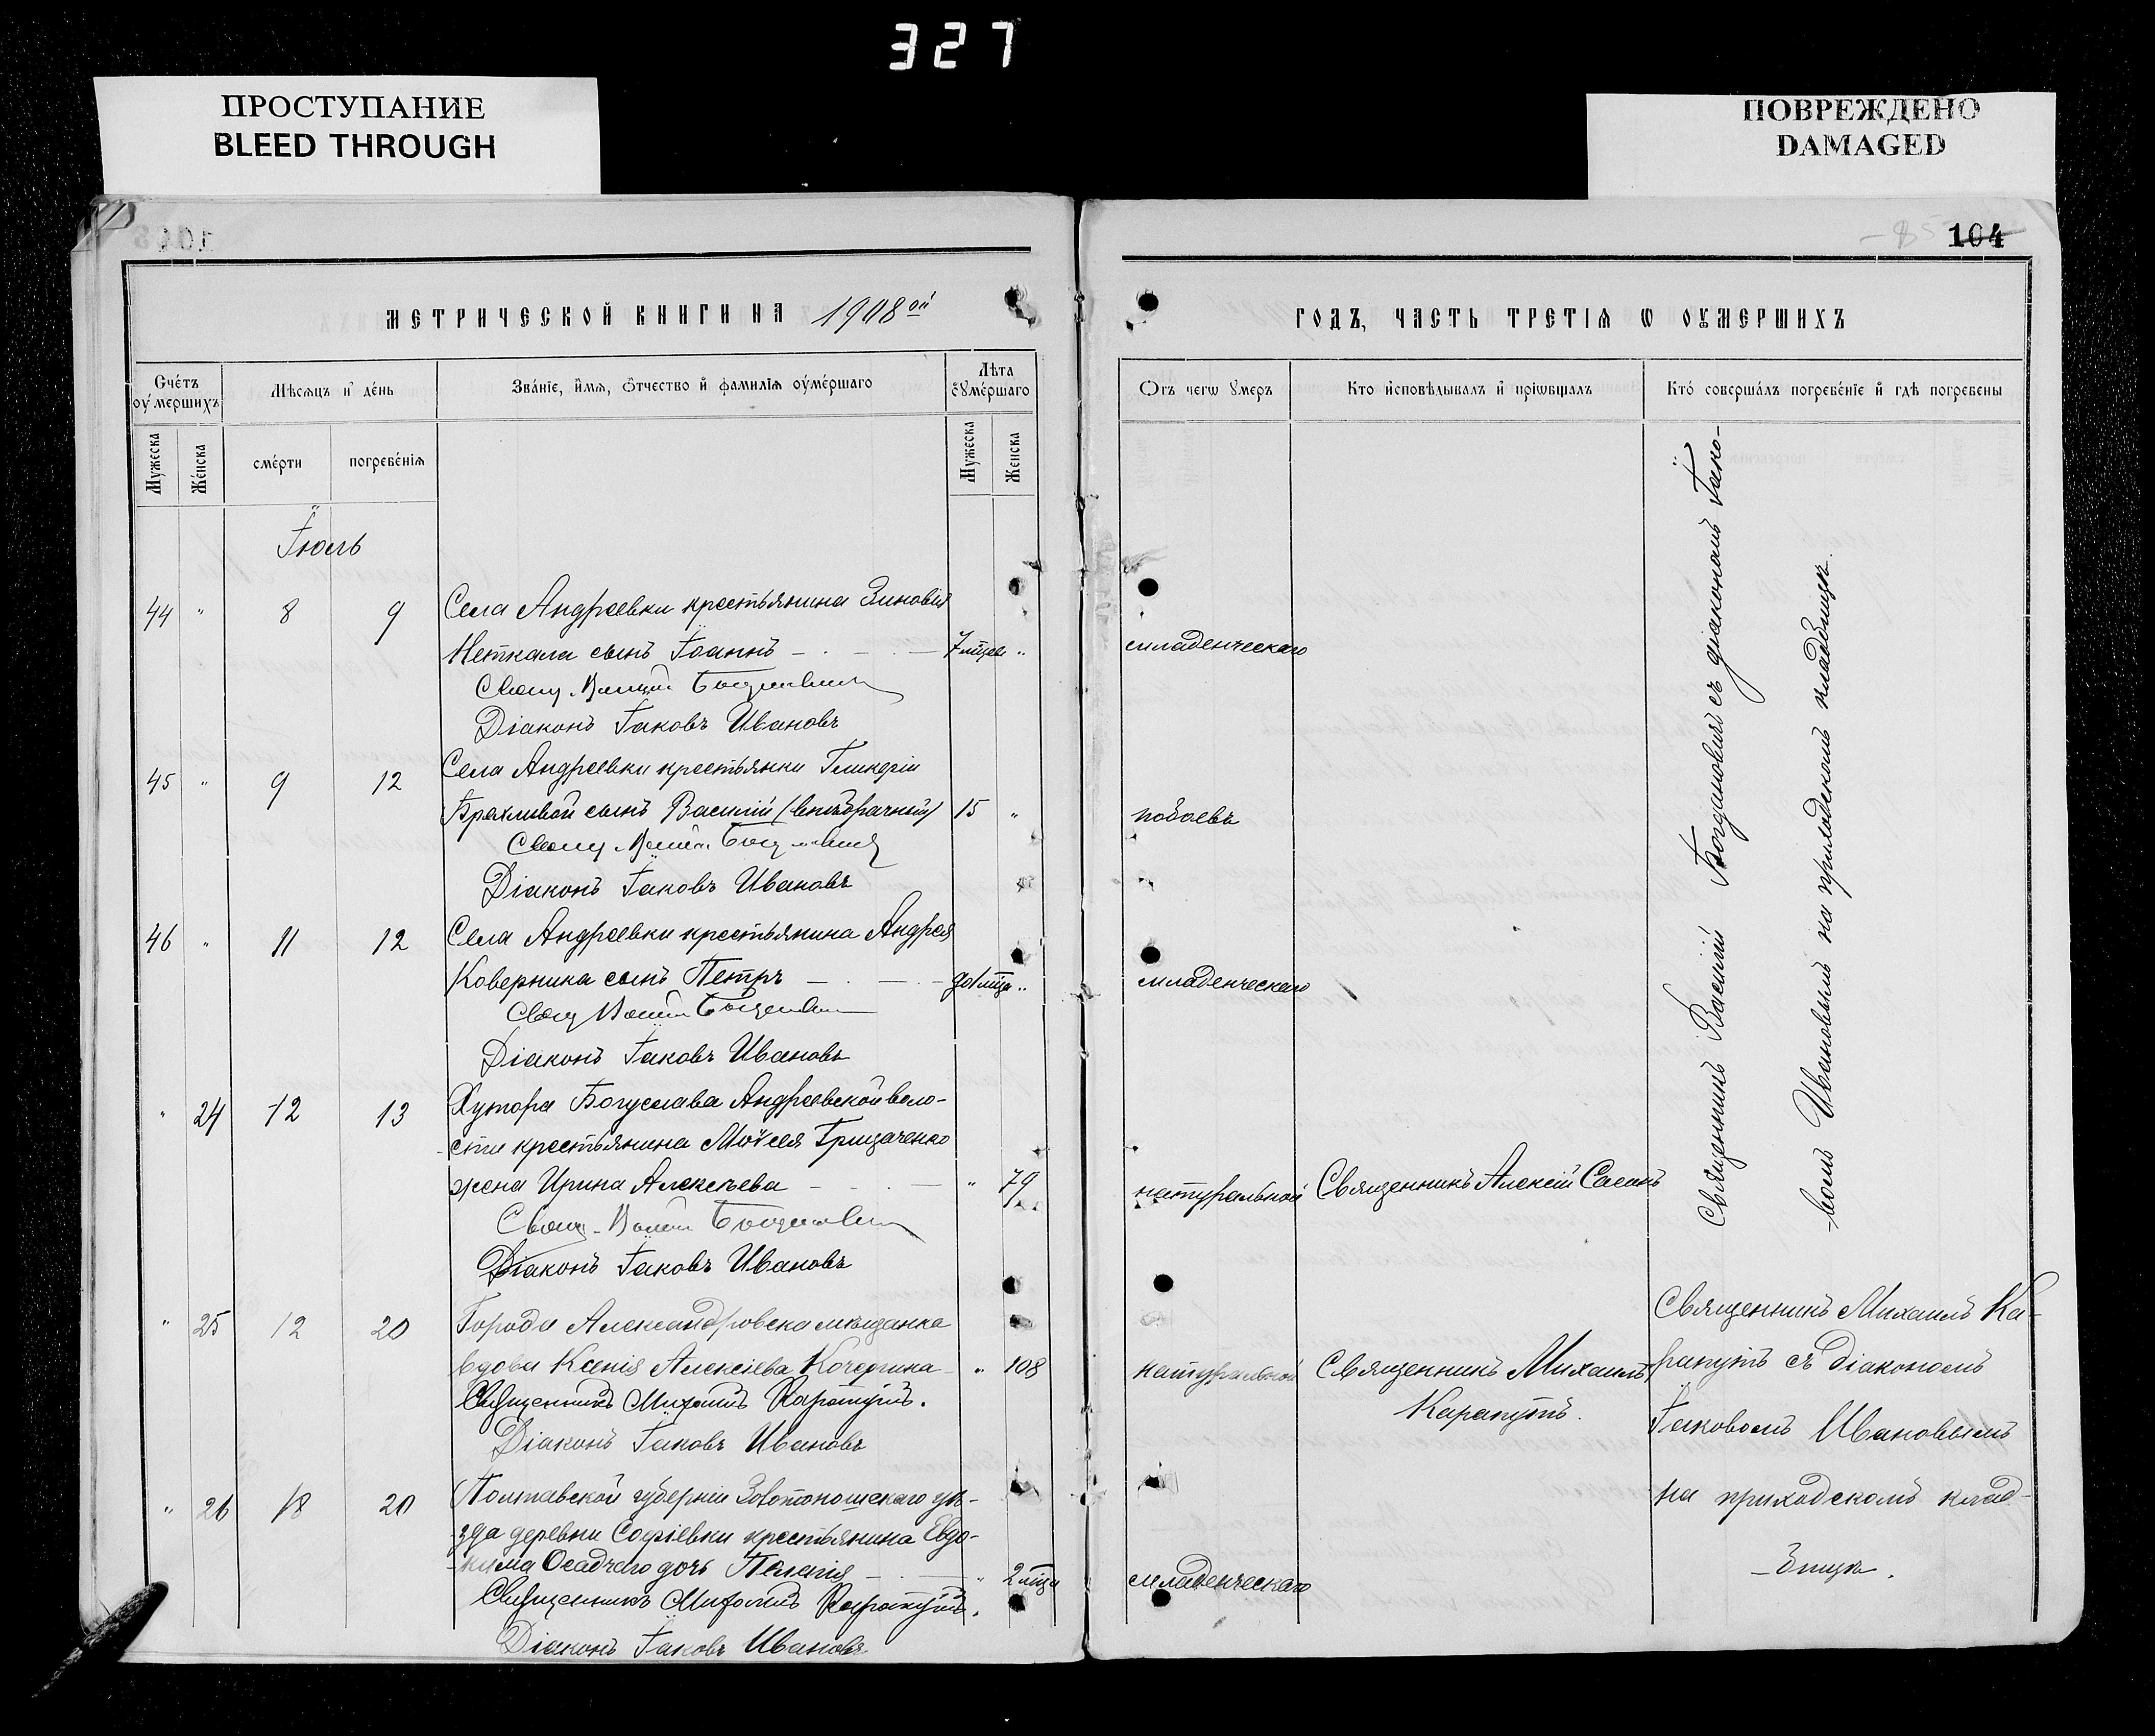 327
ПРОСТУПАНИЕ
BLEED THROUGH
ПОВРЕЖДЕНО
DAMAGED
104
МЕТРИЧЕСКОЙ КНИГИ НА 1908 ой
ГОДЪ, ЧАСТЬ ТРЕТІѦ Ѡ ОУМЕРШИХЪ
Счетъ оумершихъ
Мѣсяцъ и день
Званіе, имя, отчество и фамилія оумершаго
Лѣта оумершаго
Мужеска
Женска
смерти
погребенія
Мужеска
Женска
Отъ чегѡ умеръ
Кто исповѣдывалъ и пріѡбщалъ
Кто совершалъ погребеніе и гдѣ погребены
Іюль
44 " 8 9 Села Андреевки крестьянина Зиновія
Неткала сынъ Іоаннъ 7 мцев " младенческаго
Свящ. Василій Богдановичъ
Діаконъ Іаковъ Ивановъ
45 " 9 12 Села Андреевки крестьянки Гликеріи
Брехливой сынъ Василій (внѣбрачный) 15 " побоевъ
Свящ. Василій Богдановичъ
Діаконъ Іаковъ Ивановъ
46 " 11 12 Села Андреевки крестьянина Андрея
Коверника сынъ Петръ до 1 мца " младенческаго
Свящ. Василій Богдановичъ
Діаконъ Іаковъ Ивановъ
" 24 12 13 Хутора Богуслава Андреевской воло-
сти крестьянина Моѵсея Грицаченко
жена Ирина Алексѣева " 79 натуральной Священникъ Алексій
Свящ. Василій Богдановичъ
Діаконъ Іаковъ Ивановъ
Священникъ Василій Богдановичъ съ діакономъ Іако-
вомъ Ивановымъ на приходскомъ кладбищѣ.
" 25 12 20 Города Александровска мѣщанка
вдова Ксенія Алексіева Кочергина " 108 натуральной Священникъ Михаилъ
Карапутъ.
Священникъ Михаилъ Карапутъ.
Діаконъ Іаковъ Ивановъ
" 26 18 20 Полтавской губерніи Золотоношскаго уѣ-
зда деревни Софіевки крестьянина Евдо-
кима Осадчаго дочь Пелагія " 2 мца младенческаго
Священникъ Михаилъ Карапутъ.
Діаконъ Іаковъ Ивановъ
Священникъ Михаилъ Ка-
рапутъ съ діакономъ
Іаковомъ Ивановымъ
на приходскомъ клад-
бищѣ.